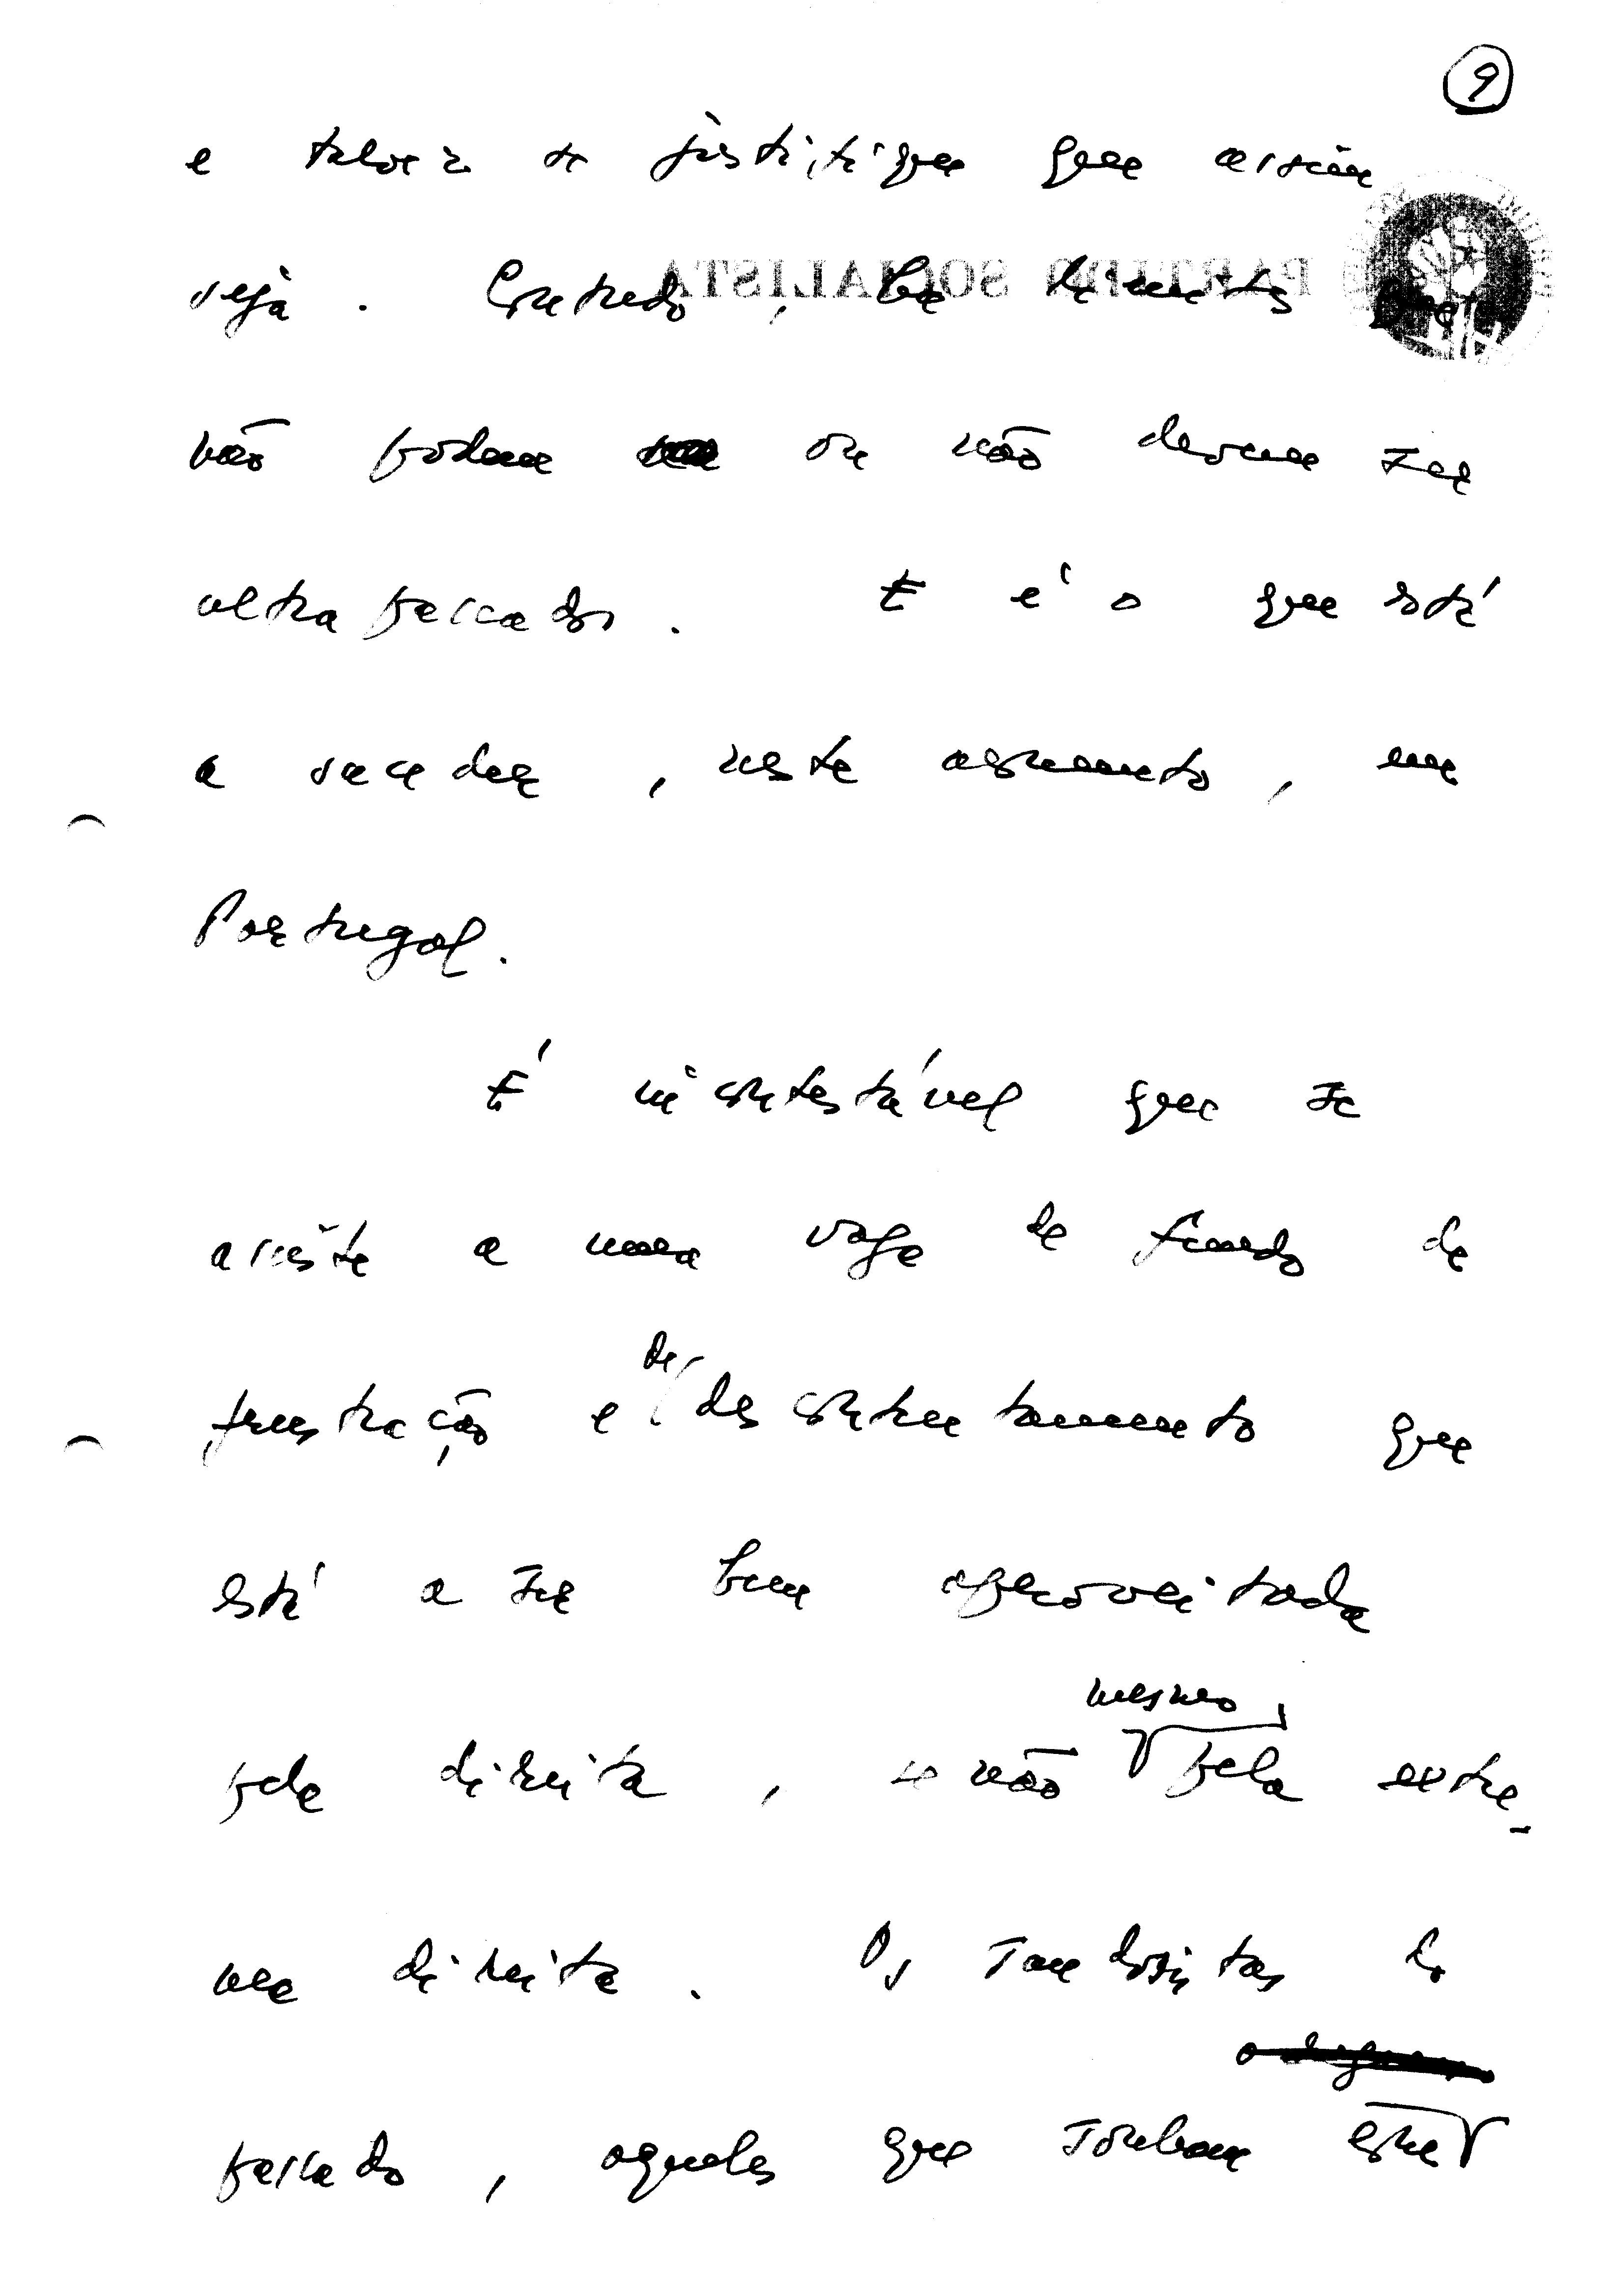 9
e talvez se justifique que assim
seja. Contudo, há limites que
PARTIDO SOCIALISTA
não podem ou não devem ser
ultrapassados. E é o que está
a suceder, neste momento, em
Portugal.
É incontestável que se
assiste a uma vaga de fundo de
frustração e de descontentamento que
está a ser bem aproveitada
pela direita, se não mesmo pela extre-
ma direita. Os saudosistas do
passado, aqueles que sonham com